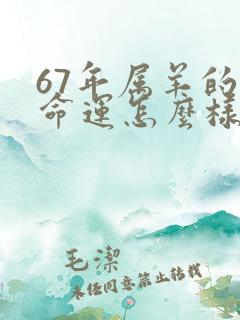 67年属羊的
命运怎麼樣
毛潔
未任同意禁止转载